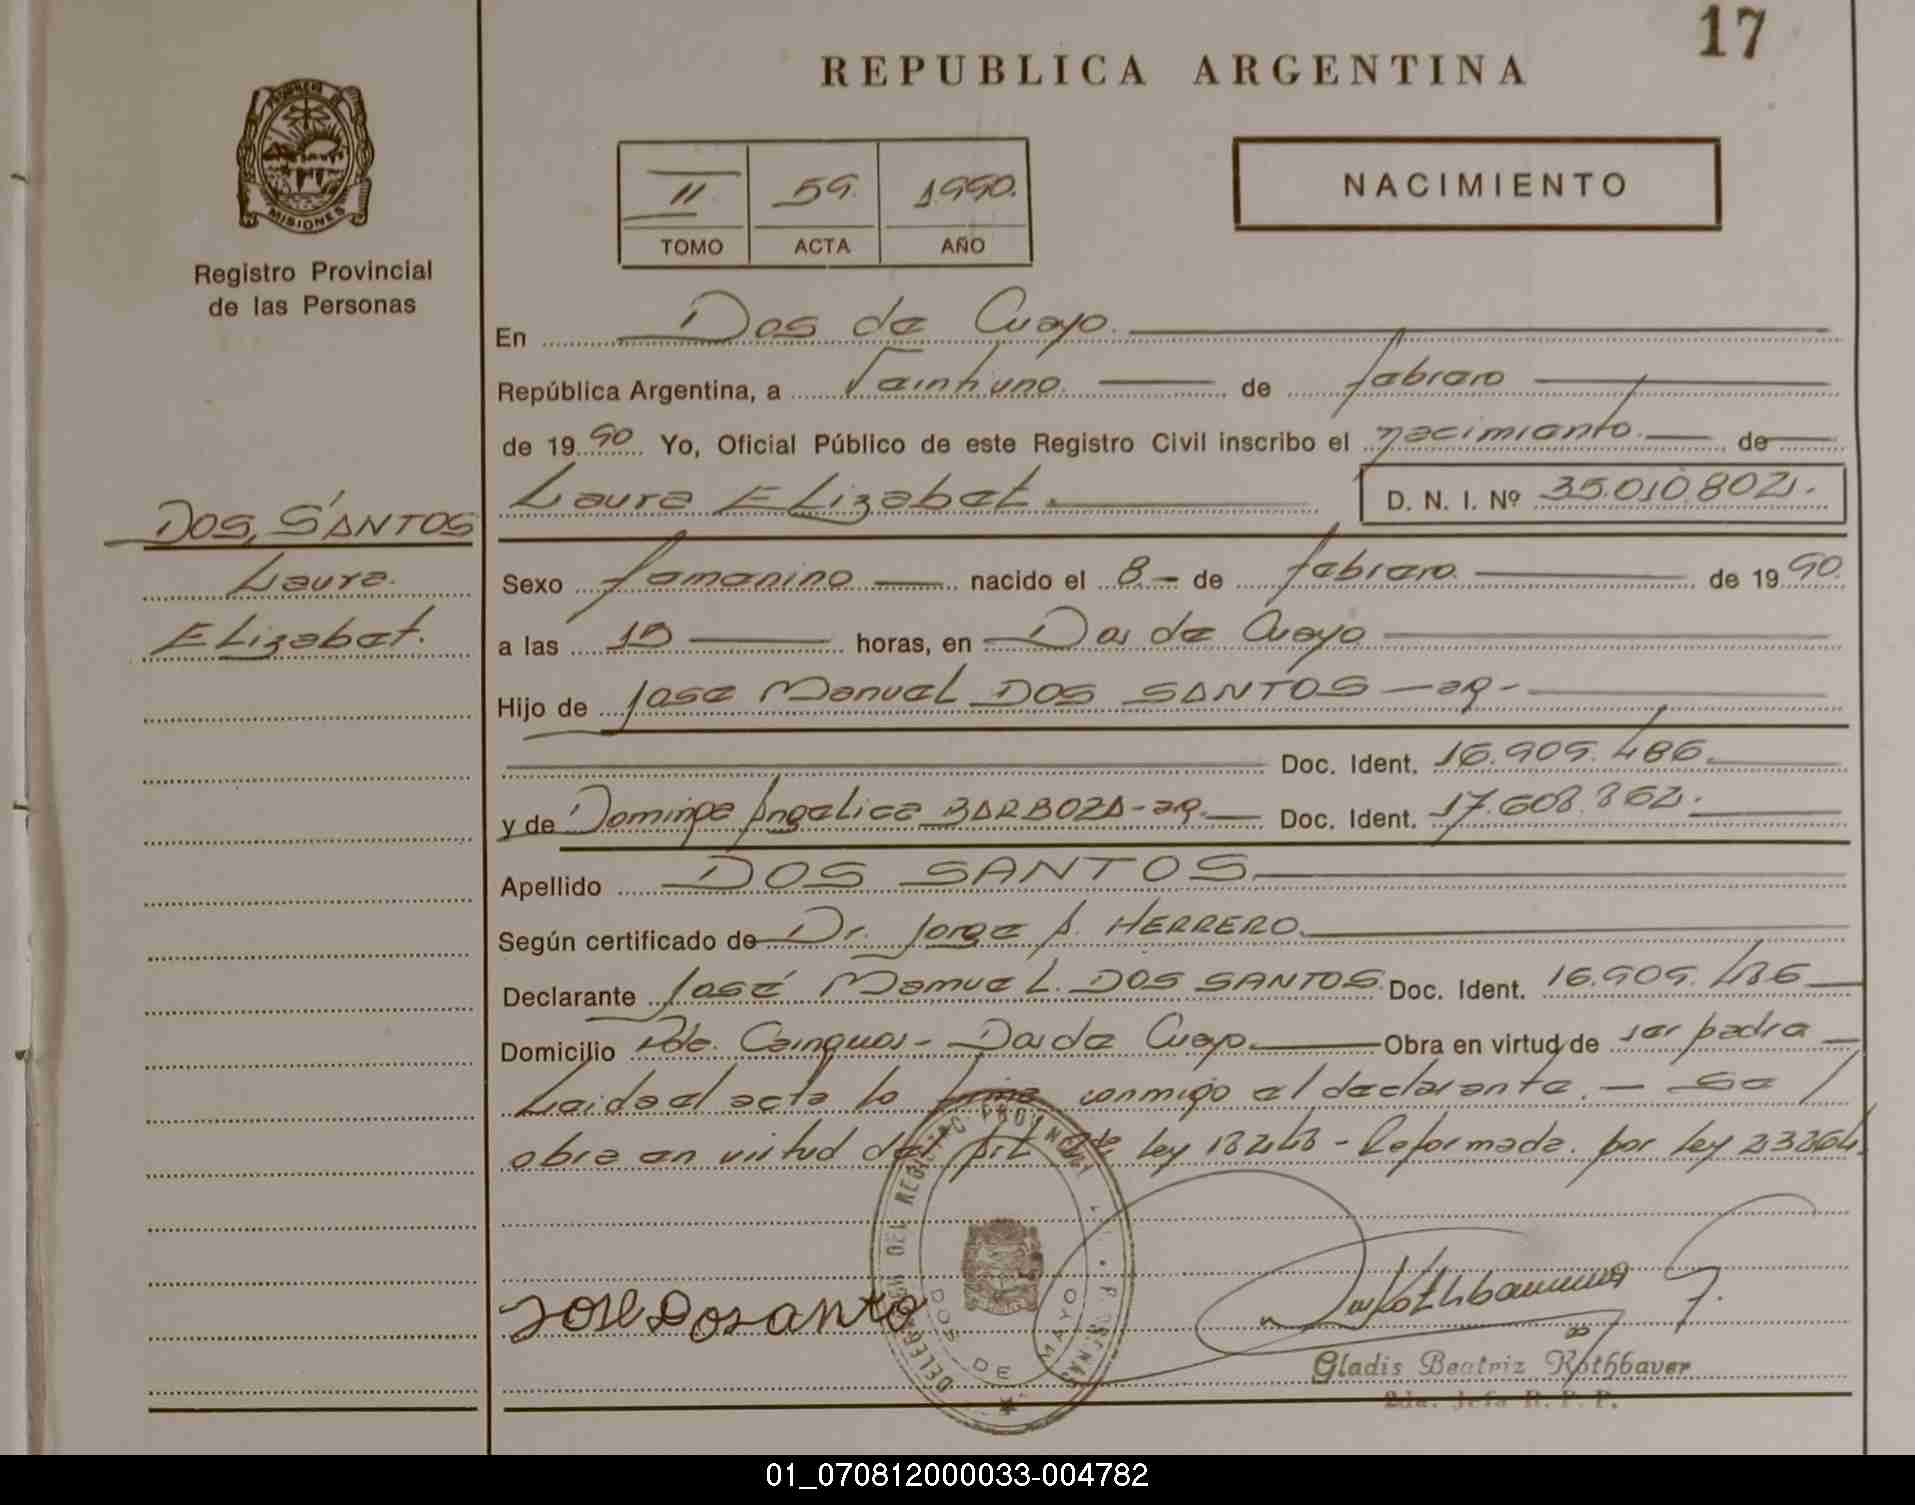 17
REPUBLICA ARGENTINA
MISIONES
Registro Provincial
de las Personas
II 59. 1990.
TOMO ACTA AÑO
NACIMIENTO
En Dos de Cuayo.
República Argentina, a Veintiuno. de febrero
de 1990 Yo, Oficial Público de este Registro Civil inscribo el nacimiento. de
Laura Elizabet. D. N. I. Nº 35.010.802.
DOS, SANTOS
Laura.
Elizabet.
Sexo femenino nacido el 8 - de febrero. de 1990.
a las 15 horas, en Dos de Cuayo
Hijo de Jose Manuel DOS SANTOS - ar -
Doc. Ident. 16.909.486
y de Dominga Angelica BARBOZA - ar. Doc. Ident. 17.608.862.
Apellido DOS SANTOS
Según certificado de Dr. Jorge A. HERRERO.
Declarante José Manuel. DOS SANTOS. Doc. Ident. 16.909.486
Domicilio Pde. Cainguas - Dos de Cuayo. Obra en virtud de ser padre
Leida el acta lo firma conmigo el declarante. - Se
obra en virtud del Art. 2do ley 18248 - Reformada. por Ley 23264.
DELEGACION DEL REGISTRO PROVINCIAL DE LAS PERSONAS
DOS DE MAYO
JOSE Dosanto
Gladis Beatriz Rothbaver
2da. Jefa R. P. P.
01_070812000033-004782